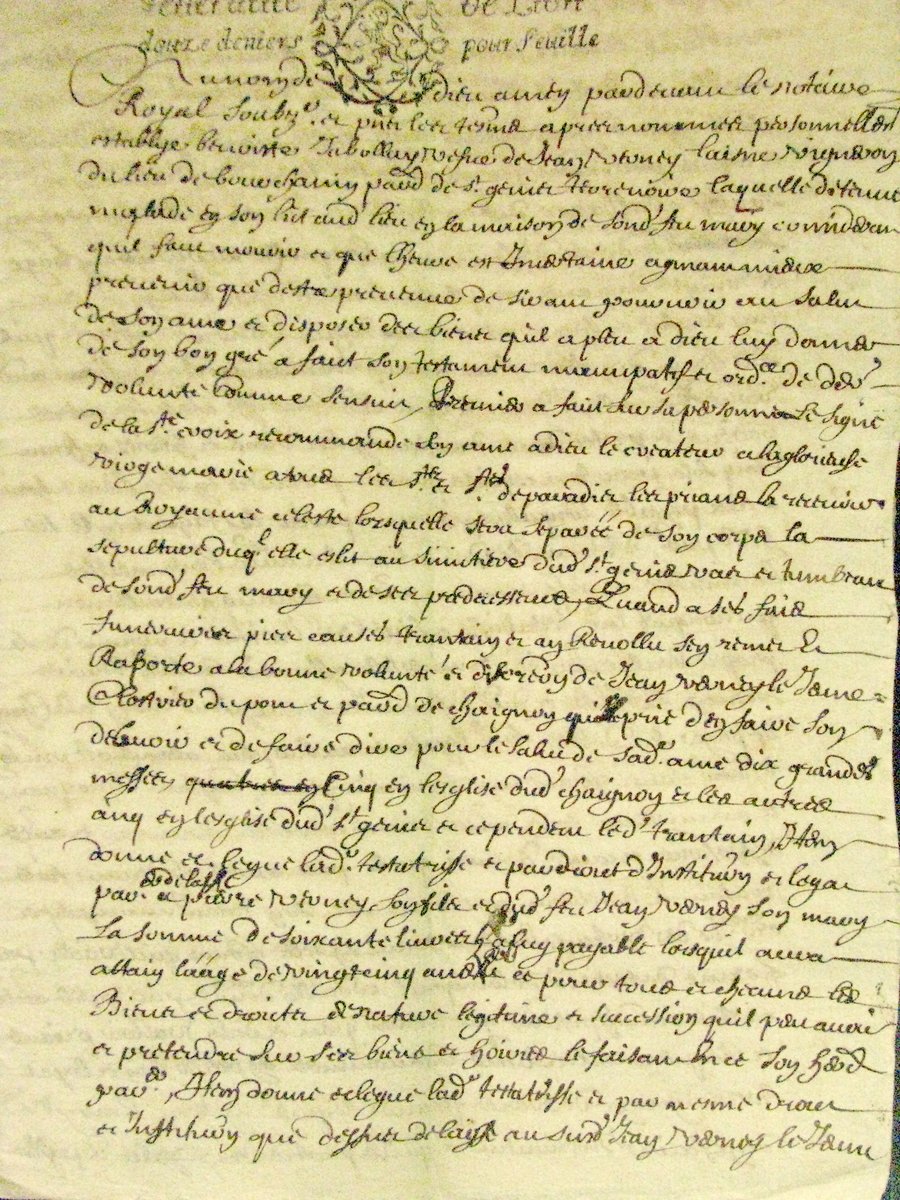 Generalité de Lion
douze deniers pour feuille
Au nom de dieu amen pardevant le notaire
Royal soubz.né et pnts les tesmoings apres nommes personnellem
establye benoiste vefve de Jean Verney laisne vigneron
du lieu de bourchanin parr de st genies Terrenoire laquelle detenue
malade en son lict aud lieu en la maison de sond feu mary considerant
quil faut mourir et que lheure est Incertaine aymant mieux
prevenir que destre prevenue desirant pourvoir au salut
de son ame et disposer des biens quil a pleu a dieu luy donner
de son bon gré a faict son testament nuncupatif et ord.ce de der.e
volunté comme sensuit, Premier a faict sur sa personne le signe
de la ste croix recommande son ame a dieu le createur a la glorieuse
vierge marie a tous les sts et stes de paradis les priant la recevoir
au Royaume celeste lorsquelle sera separée de son corps la
sepulture duql elle eslit au simitiere dud st genies vas et tumbeau
de sond feu mary et de ses predecesseurs, Quand a ses frais
funeraires pies causes trantain et an Revollu sen remet &
Raporte a la bonne volunté et discretion de Jean Verney le Jeune
Clostrier du pont et parr de chaignon quil prie den faire son
debvoir et de faire dire pour le salut de sad ame dix grandes
messes, quatres en Cinq en lesglise dud chaignon et les autres
cinq en lesglise dud st genies et cependent led trantain, Item
donne et legue lad testatrisse et par droict d'Institution et legat
par et delaisse a pierre Verney son fils et dud feu Jean Verney son mary
La somme de soixante livres a luy payable lorsquil aura
attain laage de vingtcinq ans et ce pour tous et chacuns les
Biens et droicts de nature legitime et succession quil peu avoir
et pretendre sur ses biens et hoirie le faisant en ce son herd
par, Item donne et legue lad testatrisse et par mesme droict
et Institution que dessus delaisse au susd Jean Verney le Jeune